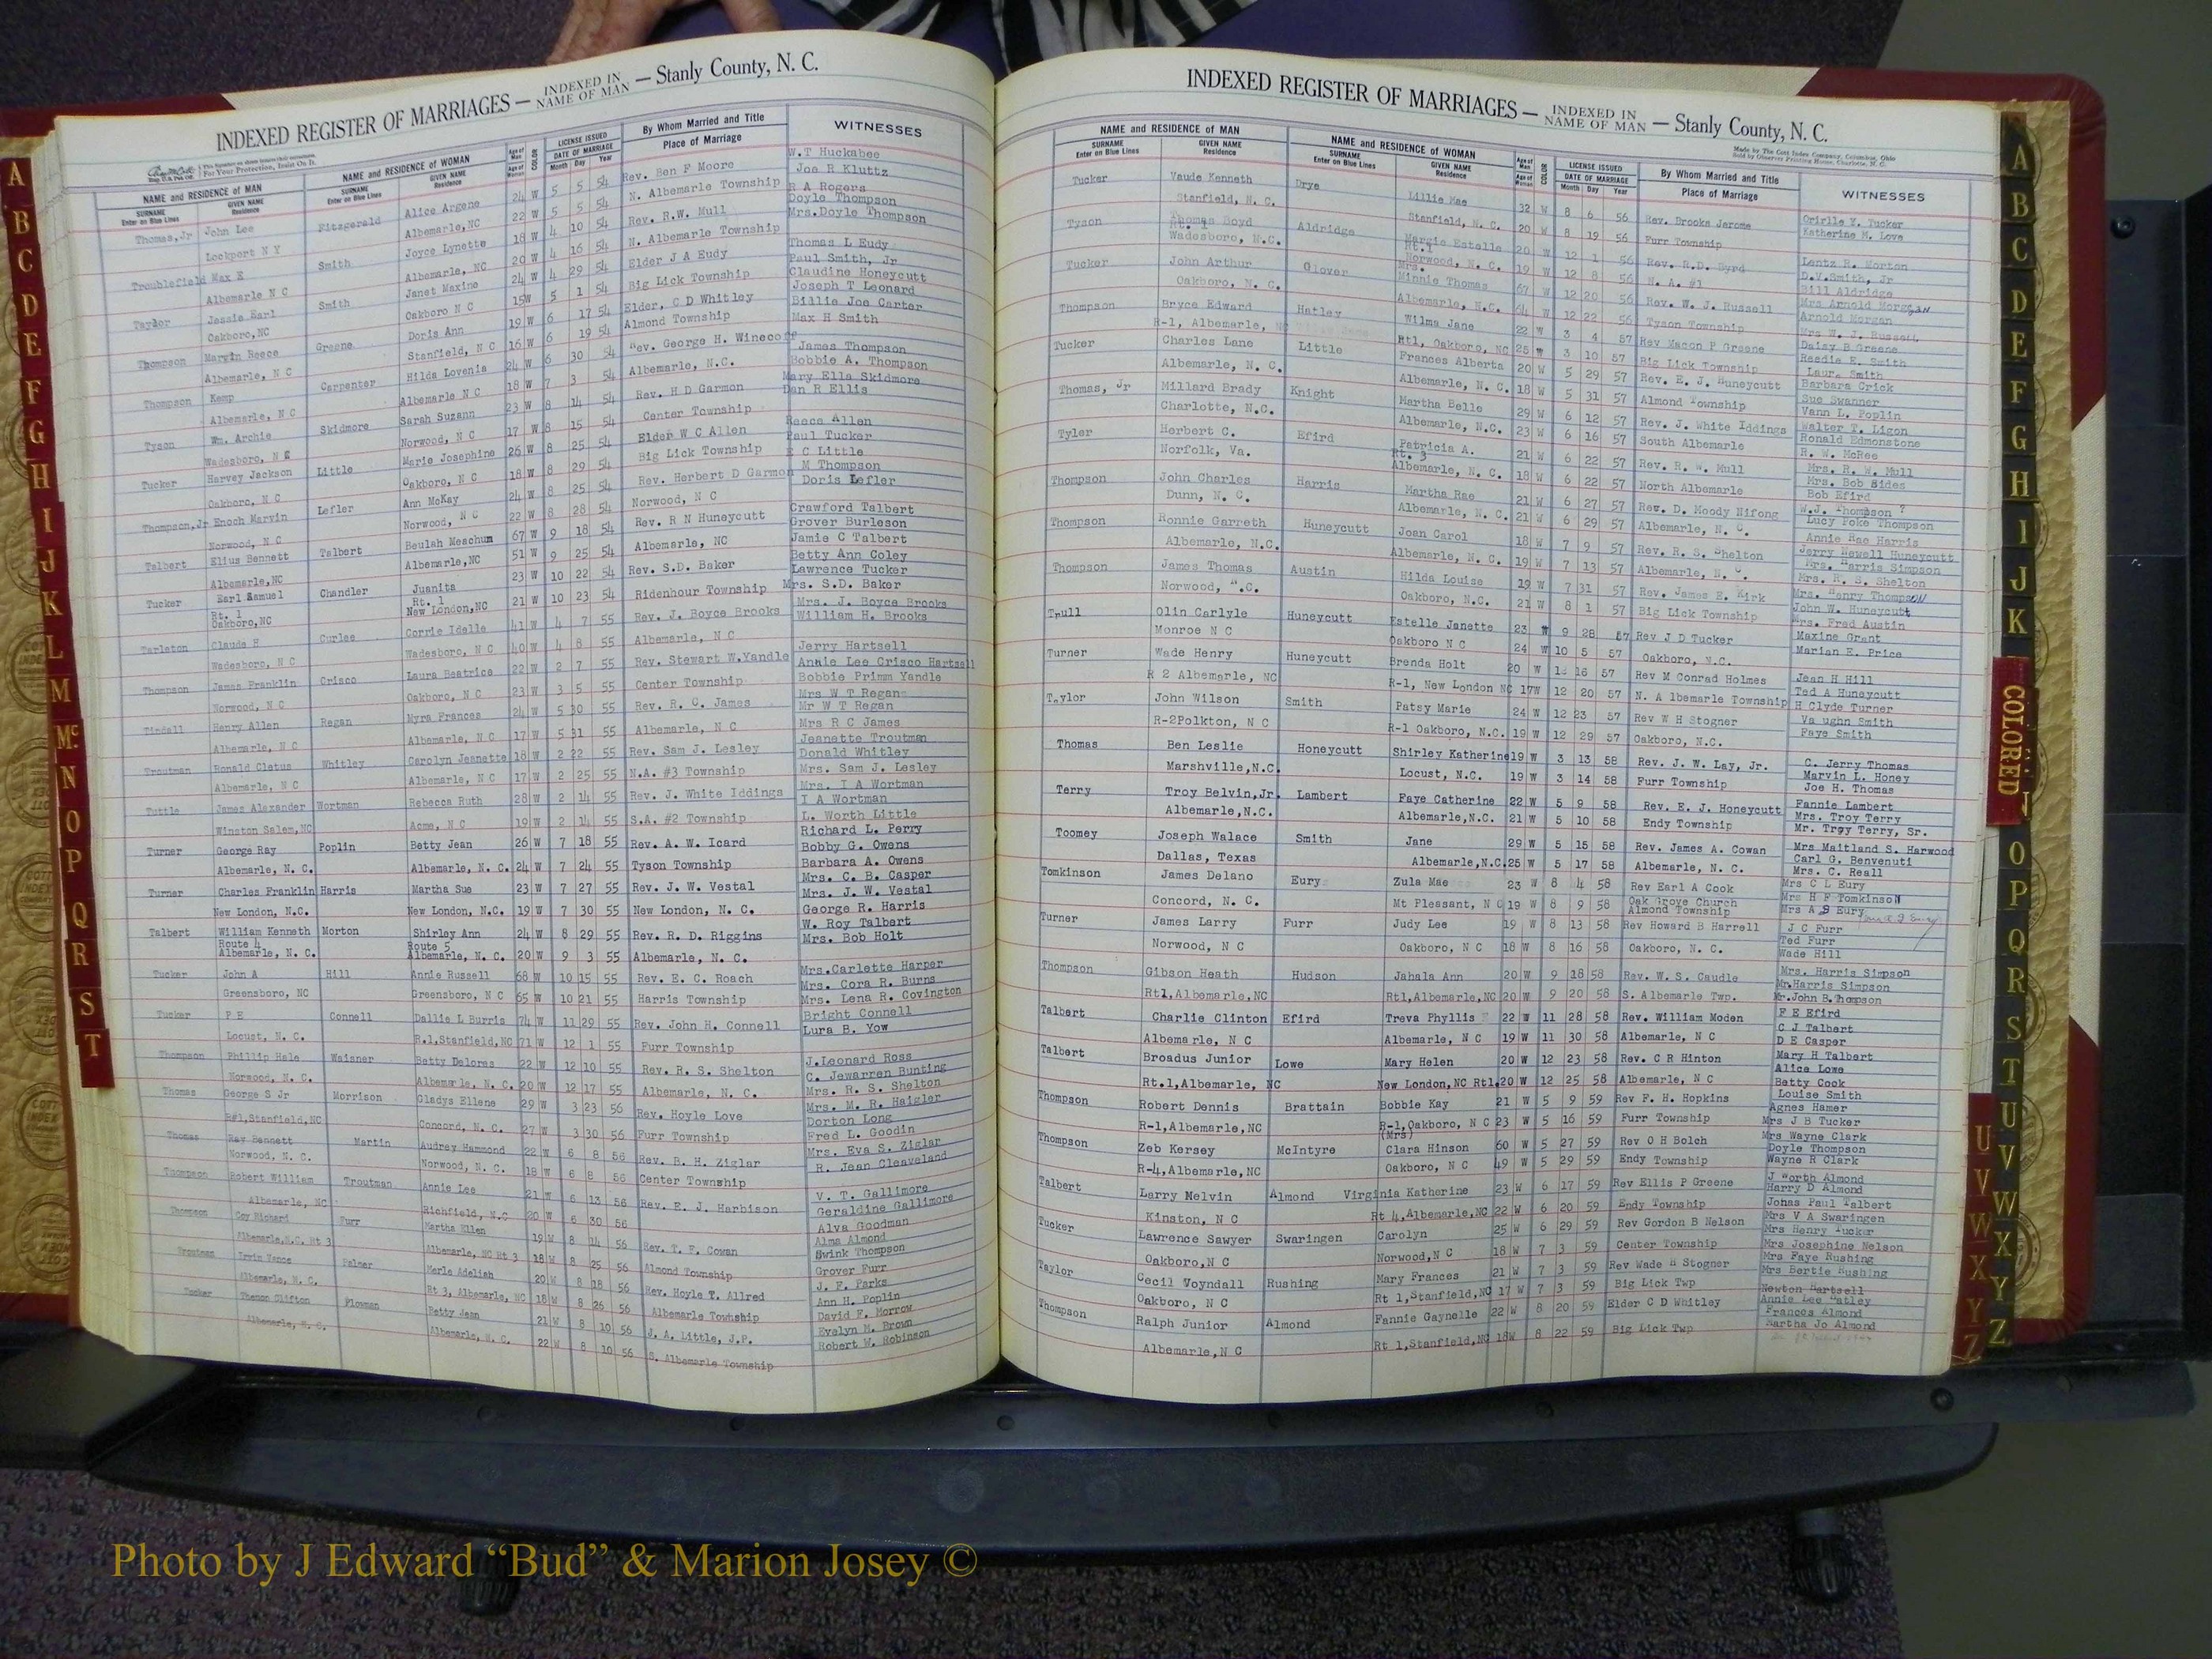 INDEXED REGISTER OF MARRIAGES — INDEXED IN NAME OF MAN — Stanly County, N. C.
NAME and RESIDENCE OF MAN NAME and RESIDENCE OF WOMAN LICENSE ISSUED By Whom Married and Title WITNESSES
SURNAME GIVEN NAME SURNAME GIVEN NAME DATE OF MARRIAGE Place of Marriage
Enter on Blue Lines Residence Enter on Blue Lines Residence Month Day Year
Thomas,Jr John Lee Fitzgerald Alice Argene 24 W 5 5 54 Rev. Ben F Moore W.T Huckabee
Lockport N Y Albemarle,NC 22 W 5 5 54 N. Albemarle Township Joe R Kluttz
Troublefield Max E Smith Joyce Lynette 18 W 4 10 54 Rev. R.W. Mull R A Rogers
Doyle Thompson
Albemarle N C Albemarle, NC 20 W 4 16 54 N. Albemarle Township Mrs.Doyle Thompson
Taylor Jessie Earl Smith Janet Maxine 24 W 4 29 54 Elder J A Eudy Thomas L Eudy
Paul Smith, Jr
Oakboro,NC Oakboro N C 15W 5 1 54 Big Lick Township Claudine Honeycutt
Thompson Margin Reece Greene Doris Ann 19 W 6 17 54 Elder, C D Whitley Joseph T Leonard
Billie Joe Carter
Albemarle, N C Stanfield, N C 16 W 6 19 54 Almond Township Max H Smith
Thompson Kemp Carpenter Hilda Lovenia 24 W 6 30 54 Rev. George H. Winecoff James Thompson
Albemarle, N C Albemarle N C 18 W 7 3 54 Albemarle, N.C. Bobbie A. Thompson
Tyson Wm. Archie Skidmore Sarah Suzann 23 W 8 14 54 Rev. H D Garmon Mary Ella Skidmore
Dan R Ellis
Wadesboro, N C Norwood, N C 17 W 8 15 54 Center Township
Tucker Harvey Jackson Little Marie Josephine 26 W 8 25 54 Elder W C Allen Reece Allen
Paul Tucker
Oakboro, N C Oakboro, N C 18 W 8 29 54 Big Lick Township C Little
Thompson,Jr Enoch Marvin Lefler Ann McKay 24 W 8 25 54 Rev. Herbert D Garmon M Thompson
Norwood, N C Norwood, N C 22 W 8 28 54 Norwood, N C Doris Lefler
Talbert Elius Bennett Talbert Beulah Meachum 67 W 9 18 54 Rev. R N Huneycutt Crawford Talbert
Grover Burleson
Albemarle,NC Albemarle,NC 51 W 9 25 54 Albemarle, NC Jamie C Talbert
Tucker Earl Samuel Chandler Juanita 23 W 10 22 54 Rev. S.D. Baker Betty Ann Coley
Rt. 1 Rt. 1 Lawrence Tucker
Oakboro,NC New London,NC 21 W 10 23 54 Ridenhour Township Mrs. S.D. Baker
Tarleton Claude H Curlee Corrie Idelle 41 W 4 7 55 Rev. J. Boyce Brooks Mrs. J. Boyce Brooks
William H. Brooks
Wadesboro, N C Wadesboro, N C 40 W 4 8 55 Albemarle, N C
Thompson James Franklin Crisco Laura Beatrice 22 W 2 7 55 Rev. Stewart W.Yandle Jerry Hartsell
Annie Lee Crisco Hartsell
Norwood, N C Oakboro, N C 23 W 3 5 55 Center Township Bobbie Primm Yandle
Tindall Henry Allen Regan Myra Frances 24 W 5 30 55 Rev. R. C. James Mrs W T Regan
Mr W T Regan
Albemarle, N C Albemarle, N C 17 W 5 31 55 Albemarle, N C Mrs R C James
Troutman Ronald Cletus Whitley Carolyn Jeanette 18 W 2 22 55 Rev. Sam J. Lesley Jeanette Troutman
Donald Whitley
Albemarle, N C Albemarle, N C 17 W 2 25 55 N.A. #3 Township Mrs. Sam J. Lesley
Tuttle James Alexander Wortman Rebecca Ruth 28 W 2 14 55 Rev. J. White Iddings Mrs. I A Wortman
I A Wortman
Winston Salem,NC Acme, N C 19 W 2 14 55 S.A. #2 Township L. Worth Little
Turner George Ray Poplin Betty Jean 26 W 7 18 55 Rev. A. W. Icard Richard L. Perry
Bobby G. Owens
Albemarle, N. C. Albemarle, N. C. 24 W 7 24 55 Tyson Township Barbara A. Owens
Turner Charles Franklin Harris Martha Sue 23 W 7 27 55 Rev. J. W. Vestal Mrs. C. B. Casper
Mrs. J. W. Vestal
New London, N.C. New London, N.C. 19 W 7 30 55 New London, N. C. George R. Harris
Talbert William Kenneth Morton Shirley Ann 24 W 8 29 55 Rev. R. D. Riggins W. Roy Talbert
Route 4 Route 5 Mrs. Bob Holt
Albemarle, N. C. Albemarle, N. C. 20 W 9 3 55 Albemarle, N. C.
Tucker John A Hill Annie Russell 68 W 10 15 55 Rev. E. C. Roach Mrs.Carlette Harper
Mrs. Cora R. Burns
Greensboro, NC Greensboro, N C 65 W 10 21 55 Harris Township Mrs. Lena R. Covington
Tucker P.E Connell Dallie L Burris 74 W 11 29 55 Rev. John H. Connell Bright Connell
Lura B. Yow
Locust, N. C. R.1,Stanfield,NC 71 W 12 1 55 Furr Township
Thompson Phillip Hale Waisner Betty Delores 22 W 12 10 55 Rev. R. S. Shelton J.Leonard Ross
C. Jewarren Bunting
Norwood, N. C. Albemarle, N. C. 20 W 12 17 55 Albemarle, N. C. Mrs. R. S. Shelton
Thomas George S Jr Morrison Gladys Ellene 29 W 3 23 56 Rev. Hoyle Love Mrs. M. R. Haigler
Dorton Long
R#1,Stanfield,NC Concord, N. C. 27 W 3 30 56 Furr Township Fred L. Goodin
Thomas Ray Bennett Martin Audrey Hammond 22 W 6 8 56 Rev. R. H. Ziglar Mrs. Eva S. Ziglar
R. Jean Cleaveland
Norwood, N. C. Norwood, N. C. 18 W 6 8 56 Center Township
Thompson Robert William Troutman Annie Lee 21 W 6 13 56 Rev. E. J. Harbison V. T. Gallimore
Geraldine Gallimore
Albemarle, NC Richfield, N.C 20 W 6 30 56 Alva Goodman
Thompson Coy Richard Furr Martha Ellen 19 W 8 14 56 Rev. T. F. Cowan Alma Almond
Swink Thompson
Albemarle,N.C. Rt 3 Albemarle, NC Rt 3 18 W 8 25 56 Almond Township Grover Furr
Troutman Irvin Vance Palmer Merle Adeliah 20 W 8 18 56 Rev. Hoyle T. Allred J. F. Parks
Ann H. Poplin
Albemarle, N. C. Rt 3, Albemarle, NC 18 W 8 26 56 Albemarle Township David F. Morrow
Tucker Thenon Clifton Plowman Betty Jean 21 W 8 10 56 J. A. Little, J.P. Evelyn M. Brown
Robert W. Robinson
Albemarle, N. C. Albemarle, N. C. 22 W 8 10 56 S. Albemarle Township
INDEXED REGISTER OF MARRIAGES — INDEXED IN NAME OF MAN — Stanly County, N. C.
NAME and RESIDENCE OF MAN NAME and RESIDENCE OF WOMAN LICENSE ISSUED By Whom Married and Title WITNESSES
SURNAME GIVEN NAME SURNAME GIVEN NAME DATE OF MARRIAGE Place of Marriage
Enter on Blue Lines Residence Enter on Blue Lines Residence Month Day Year
Tucker Vaude Kenneth Drye Lillie Mae 32 W 8 6 56 Rev. Brooks Jerome Orirlle K. Tucker
Katherine M. Love
Stanfield, N. C. Stanfield, N. C. 20 W 8 19 56 Furr Township
Tyson Thomas Boyd Aldridge Margie Estelle 20 W 12 1 56 Rev. R.D. Byrd Lentz R. Morton
Rt. 1 Rt.1 D.V.Smith, Jr
Wadesboro, N.C. Norwood, N. C. 19 W 12 8 56 N. A. #1 Bill Aldridge
Tucker John Arthur Glover Mrs. Minnie Thomas 67 W 12 20 56 Rev. W. J. Russell Mrs Arnold Morgan
Arnold Morgan
Oakboro, N. C. Albemarle, N.C. 64 W 12 22 56 Tyson Township Mrs W. J. Russell
Thompson Bryce Edward Hatley Wilma Jane 22 W 3 4 57 Rev Macon P Greene Daisy B Greene
Reedie E. Smith
R-1, Albemarle, NC Rt1, Oakboro, NC 25 W 3 10 57 Big Lick Township
Tucker Charles Lane Little Frances Alberta 20 W 5 29 57 Rev. E. J. Huneycutt Barbara Crick
Sue Swanner
Albemarle, N. C. Albemarle, N. C. 18 W 5 31 57 Almond Township Vann L. Poplin
Thomas, Jr Millard Brady Knight Martha Belle 29 W 6 12 57 Rev. J. White Iddings Walter T. Ligon
Ronald Edmonstone
Charlotte, N.C. Albemarle, N.C. 23 W 6 16 57 South Albemarle R. W. McRee
Tyler Herbert C. Efird Patricia A. 21 W 6 22 57 Rev. R. W. Mull Mrs. R. W. Mull
Rt. 3 Mrs. Bob Sides
Norfolk, Va. Albemarle, N. C. 18 W 6 22 57 North Albemarle Bob Efird
Thompson John Charles Harris Martha Rae 21 W 6 27 57 Rev. D. Moody Nifong W.J. Thompson ?
Lucy Poke Thompson
Dunn, N. C. Albemarle, N. C. 21 W 6 29 57 Albemarle, N. C. Annie Rae Harris
Thompson Ronnie Garreth Huneycutt Joan Carol 18 W 7 9 57 Rev. R. S. Shelton Jerry Newell Huneycutt
Mrs. Harris Simpson
Albemarle, N.C. Albemarle, N. C. 19 W 7 13 57 Albemarle, N. C. Mrs. R. S. Shelton
Thompson James Thomas Austin Hilda Louise 19 W 7 31 57 Rev. James E. Kirk Mrs. Henry Thompson
John W. Huneycutt
Norwood, N.C. Oakboro, N.C. 21 W 8 1 57 Big Lick Township Mrs. Fred Austin
Trull Olin Carlyle Huneycutt Estelle Janette 23 W 9 28 57 Rev J D Tucker Maxine Grant
Marian E. Price
Monroe N C Oakboro N C 24 W 10 5 57 Oakboro, N.C.
Turner Wade Henry Huneycutt Brenda Holt 20 W 16 57 Rev M Conrad Holmes Jean H Hill
Ted A Huneycutt
R 2 Albemarle, NC R-1, New London NC 17W 12 20 57 N. A lbemarle Township H Clyde Turner
Taylor John Wilson Smith Patsy Marie 24 W 12 23 57 Rev W H Stogner Va ughn Smith
Faye Smith
R-2Polkton, N C R-1 Oakboro, N.C. 19 W 12 29 57 Oakboro, N.C.
Thomas Ben Leslie Honeycutt Shirley Katherine19 W 3 13 58 Rev. J. W. Lay, Jr. C. Jerry Thomas
Marvin L. Honey
Marshville,N.C. Locust, N.C. 19 W 3 14 58 Furr Township Joe H. Thomas
Terry Troy Belvin,Jr. Lambert Faye Catherine 22 W 5 9 58 Rev. E. J. Honeycutt Fannie Lambert
Mrs. Troy Terry
Albemarle,N.C. Albemarle,N.C. 21 W 5 10 58 Endy Township Mr. Troy Terry, Sr.
Toomey Joseph Walace Smith Jane 29 W 5 15 58 Rev. James A. Cowan Mrs Maitland S. Harwood
Carl G. Benvenuti
Dallas, Texas Albemarle,N.C. 25 W 5 17 58 Albemarle, N. C. Mrs. C. Reall
Tomkinson James Delano Eury Zula Mae 23 W 8 4 58 Rev Earl A Cook Mrs C L Eury
Oak Grove Church Mrs H F Tomkinson
Concord, N. C. Mt Pleasant, N C 19 W 8 9 58 Almond Township Mrs A J Eury
Turner James Larry Furr Judy Lee 19 W 8 13 58 Rev Howard B Harrell J C Furr
Ted Furr
Norwood, N C Oakboro, N C 18 W 8 16 58 Oakboro, N. C. Wade Hill
Thompson Gibson Heath Hudson Jahala Ann 20 W 9 18 58 Rev. W. S. Caudle Mrs. Harris Simpson
Mr.Harris Simpson
Rt1,Albemarle,NC Rt1,Albemarle,NC 20 W 9 20 58 S. Albemarle Twp. Mr.John B.Thompson
Talbert Charlie Clinton Efird Treva Phyllis 22 W 11 28 58 Rev. William Moden F E Efird
C J Talbert
Albemarle, N C Albemarle, N C 19 W 11 30 58 Albemarle, N C D E Casper
Talbert Broadus Junior Lowe Mary Helen 20 W 12 23 58 Rev. C R Hinton Mary H Talbert
Alice Lowe
Rt.1,Albemarle, NC New London,NC Rt1 20 W 12 25 58 Albemarle, N C Betty Cook
Thompson Robert Dennis Brattain Bobbie Kay 21 W 5 9 59 Rev F. H. Hopkins Louise Smith
Agnes Hamer
R-1,Albemarle,NC R-1,Oakboro, N C 23 W 5 16 59 Furr Township Mrs J B Tucker
Thompson Zeb Kersey McIntyre (Mrs) Clara Hinson 60 W 5 27 59 Rev O H Bolch Mrs Wayne Clark
Doyle Thompson
R-4,Albemarle,NC Oakboro, N C 49 W 5 29 59 Endy Township Wayne R Clark
Talbert Larry Melvin Almond Virginia Katherine 23 W 6 17 59 Rev Ellis P Greene J Worth Almond
Harry D Almond
Kinston, N C Rt 4,Albemarle,NC 22 W 6 20 59 Endy Township Jonas Paul Talbert
Tucker Lawrence Sawyer Swaringen Carolyn 25 W 6 29 59 Rev Gordon B Nelson Mrs V A Swaringen
Mrs Henry Tucker
Oakboro,N C Norwood,N C 18 W 7 3 59 Center Township Mrs Josephine Nelson
Taylor Cecil Woyndall Rushing Mary Frances 21 W 7 3 59 Rev Wade H Stogner Mrs Faye Rushing
Mrs Bertie Rushing
Oakboro, N C Rt 1,Stanfield,NC 17 W 7 3 59 Big Lick Twp
Thompson Ralph Junior Almond Fannie Gaynelle 22 W 8 20 59 Elder C D Whitley Newton Hartsell
Annie Lee Hatley
Frances Almond
Albemarle,N C Rt 1,Stanfield,NC 18W 8 22 59 Big Lick Twp Martha Jo Almond
A B C D E F G H I J K L M Mc N O P Q R S T
A B C D E F G H I J K COLORED O P Q R S T U V W X Y Z
U V W X Y Z
Photo by J Edward “Bud” & Marion Josey ©